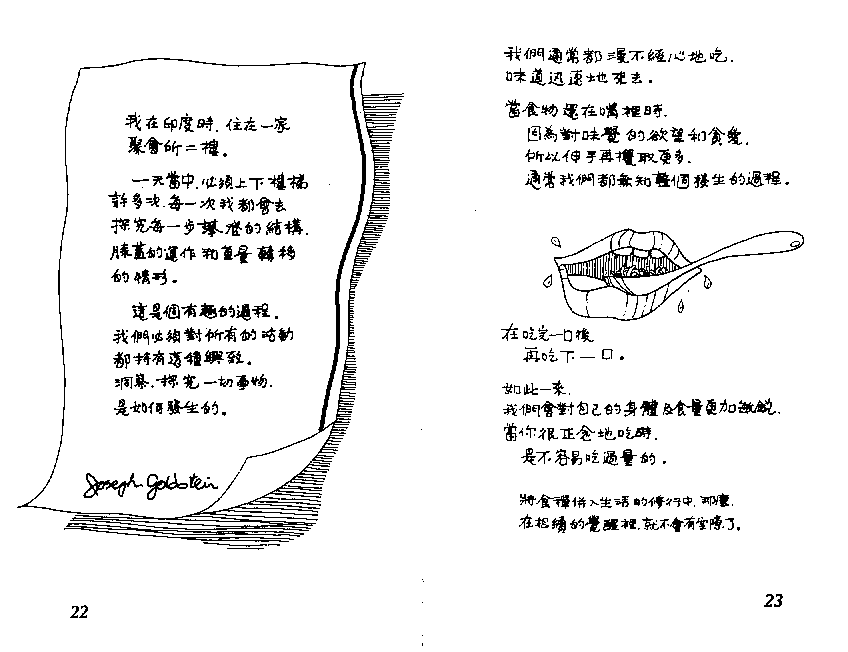 我在印度時，住在一家
聚會所二樓。
一天當中，必須上下樓梯
許多次，每一次我都會去
探究每一步攀登的結構，
膝蓋的運作和重量轉移
的情形。
這是個有趣的過程，
我們必須對所有的活動
都持有這種興致。
洞察、探究一切事物，
是如何發生的。
Joseph Goldstein
22
我們通常都漫不經心地吃，
味道迅速地來去。
當食物還在嘴裡時，
因為對味覺的欲望和貪愛，
所以伸手再攫取更多，
通常我們都無知整個發生的過程。
在吃完一口後，
再吃下一口。
如此一來，
我們會對自己的身體及食量更加敏銳，
當你很正念地吃時，
是不容易吃過量的。
將食禪併入生活的修行中，那麼，
在相續的覺醒裡，就不會有空隙了。
23